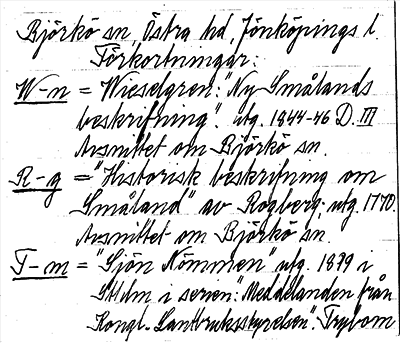 Björkö sn, Östra hd, Jönköpings l
Förkortningar:
W-n = Wieselgren: "Ny Smålands
beskrifning". utg. 1844-46 D. III
Avsnittet om Björkö sn.
R-g = "Historisk beskrifning om
Småland" av Rogberg, utg. 1770.
Avsnittet om Björkö sn.
T-m = "Sjön Nömmen" utg. 1879 i
Sthlm i serien: "Meddelanden från
Kongl. Lantbruksstyrelsen". Trybom